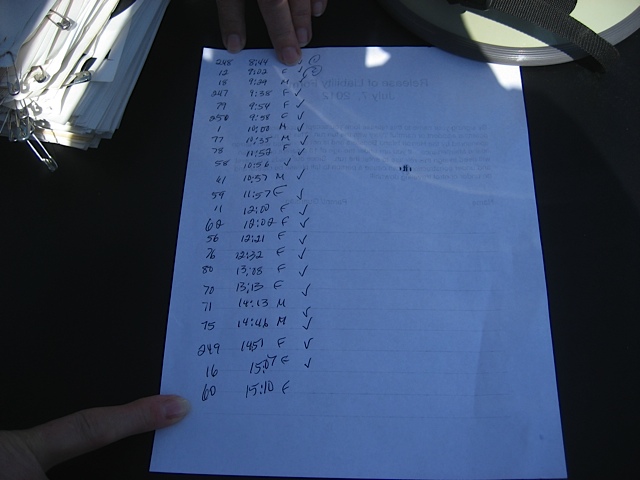 248 8:44 ✓
12 9:02 F ✓
18 9:29 M ✓
247 9:38 F ✓
79 9:54 F ✓
250 9:58 F ✓
1 10:00 M ✓
77 10:35 M ✓
78 11:52 F ✓
58 10:56 ✓
61 10:57 M ✓
59 11:57 F ✓
11 12:00 F ✓
62 12:02 F ✓
56 12:21 F ✓
76 12:32 F ✓
80 13:08 F ✓
70 13:13 F ✓
71 14:13 M ✓
75 14:46 M ✓
249 1451 F ✓
16 15:07 F ✓
60 15:10 F
Release of Liability Form
July 7, 2012